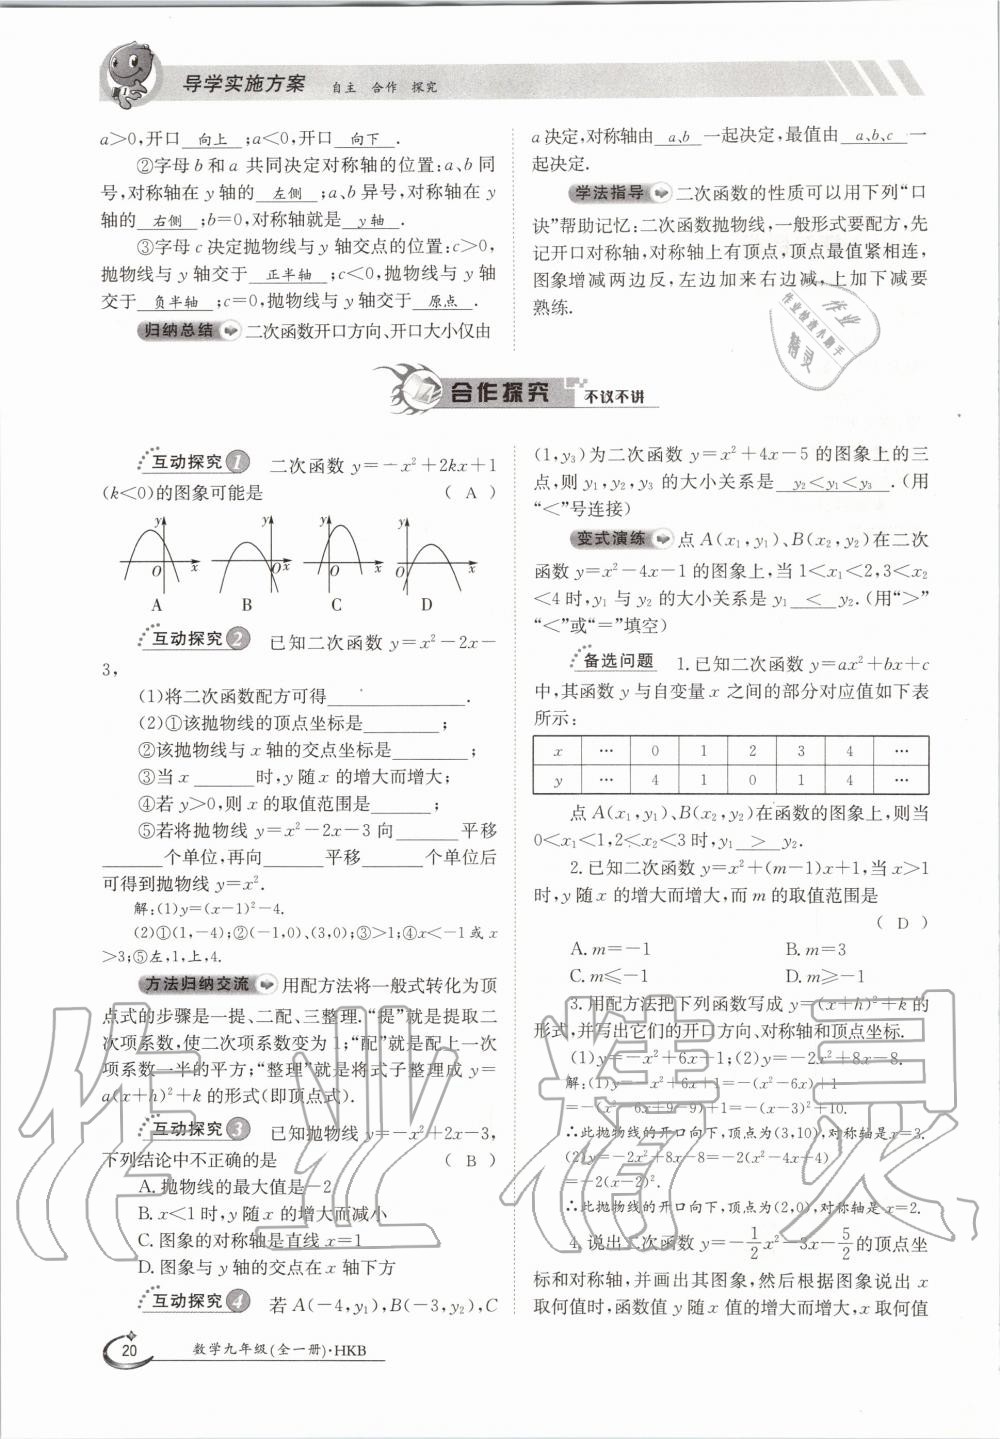 导学实施方案 自主 合作 探究
a>0,开口 向上 ;a<0,开口 向下 .
②字母b和a共同决定对称轴的位置:a、b同
号,对称轴在y轴的 左侧 ;a、b异号,对称轴在y
轴的 右侧 ;b=0,对称轴就是 y轴 .
③字母c决定抛物线与y轴交点的位置:c>0,
抛物线与y轴交于 正半轴 ;c<0,抛物线与y轴
交于 负半轴 ;c=0,抛物线与y轴交于 原点 .
归纳总结 二次函数开口方向、开口大小仅由
a决定,对称轴由 a、b 一起决定,最值由 a、b、c 一
起决定.
学法指导 二次函数的性质可以用下列“口
诀”帮助记忆:二次函数抛物线,一般形式要配方,先
记开口对称轴,对称轴上有顶点,顶点最值紧相连,
图象增减两边反,左边加来右边减,上加下减要
熟练.
作业
作业检查小助手
精灵
合作探究 不议不讲
互动探究1 二次函数y=-x²+2kx+1
(k<0)的图象可能是 ( A )
y y y y
O x O x O x O x
A B C D
互动探究2 已知二次函数y=x²-2x-
3,
(1)将二次函数配方可得____.
(2)①该抛物线的顶点坐标是____;
②该抛物线与x轴的交点坐标是____;
③当x____时,y随x的增大而增大;
④若y>0,则x的取值范围是____;
⑤若将抛物线y=x²-2x-3向____平移
____个单位,再向____平移____个单位后
可得到抛物线y=x².
解:(1)y=(x-1)²-4.
(2)①(1,-4);②(-1,0)、(3,0);③>1;④x<-1或x
>3;⑤左,1,上,4.
方法归纳交流 用配方法将一般式转化为顶
点式的步骤是一提、二配、三整理.“提”就是提取二
次项系数,使二次项系数变为1;“配”就是配上一次
项系数一半的平方;“整理”就是将式子整理成y=
a(x+h)²+k的形式(即顶点式).
互动探究3 已知抛物线y=-x²+2x-3,
下列结论中不正确的是 ( B )
A.抛物线的最大值是-2
B.x<1时,y随x的增大而减小
C.图象的对称轴是直线x=1
D.图象与y轴的交点在x轴下方
互动探究4 若A(-4,y₁),B(-3,y₂),C
(1,y₃)为二次函数y=x²+4x-5的图象上的三
点,则y₁,y₂,y₃的大小关系是 y₂<y₁<y₃ .(用
“<”号连接)
变式演练 点A(x₁,y₁)、B(x₂,y₂)在二次
函数y=x²-4x-1的图象上,当1<x₁<2,3<x₂
<4时,y₁与y₂的大小关系是y₁ < y₂.(用“>”
“<”或“=”填空)
备选问题 1.已知二次函数y=ax²+bx+c
中,其函数y与自变量x之间的部分对应值如下表
所示:
x … 0 1 2 3 4 …
y … 4 1 0 1 4 …
点A(x₁,y₁)、B(x₂,y₂)在函数的图象上,则当
0<x₁<1,2<x₂<3时,y₁ > y₂.
2.已知二次函数y=x²+(m-1)x+1,当x>1
时,y随x的增大而增大,而m的取值范围是
( D )
A.m=-1 B.m=3
C.m≤-1 D.m≥-1
3.用配方法把下列函数写成y=(x+h)²+k的
形式,并写出它们的开口方向、对称轴和顶点坐标.
(1)y=-x²+6x+1;(2)y=-2x²+8x-8.
解:(1)y=-x²+6x+1=-(x²-6x)+1
=-(x²-6x+9-9)+1=-(x-3)²+10.
∴此抛物线的开口向下,顶点为(3,10),对称轴是x=3.
(2)y=-2x²+8x-8=-2(x²-4x+4)
=-2(x-2)².
∴此抛物线的开口向下,顶点为(2,0),对称轴是x=2.
4.说出二次函数y=-1/2x²-3x-5/2的顶点坐
标和对称轴,并画出其图象,然后根据图象说出x
取何值时,函数值y随x值的增大而增大,x取何值
作业精灵
20 数学九年级(全一册)·HKB